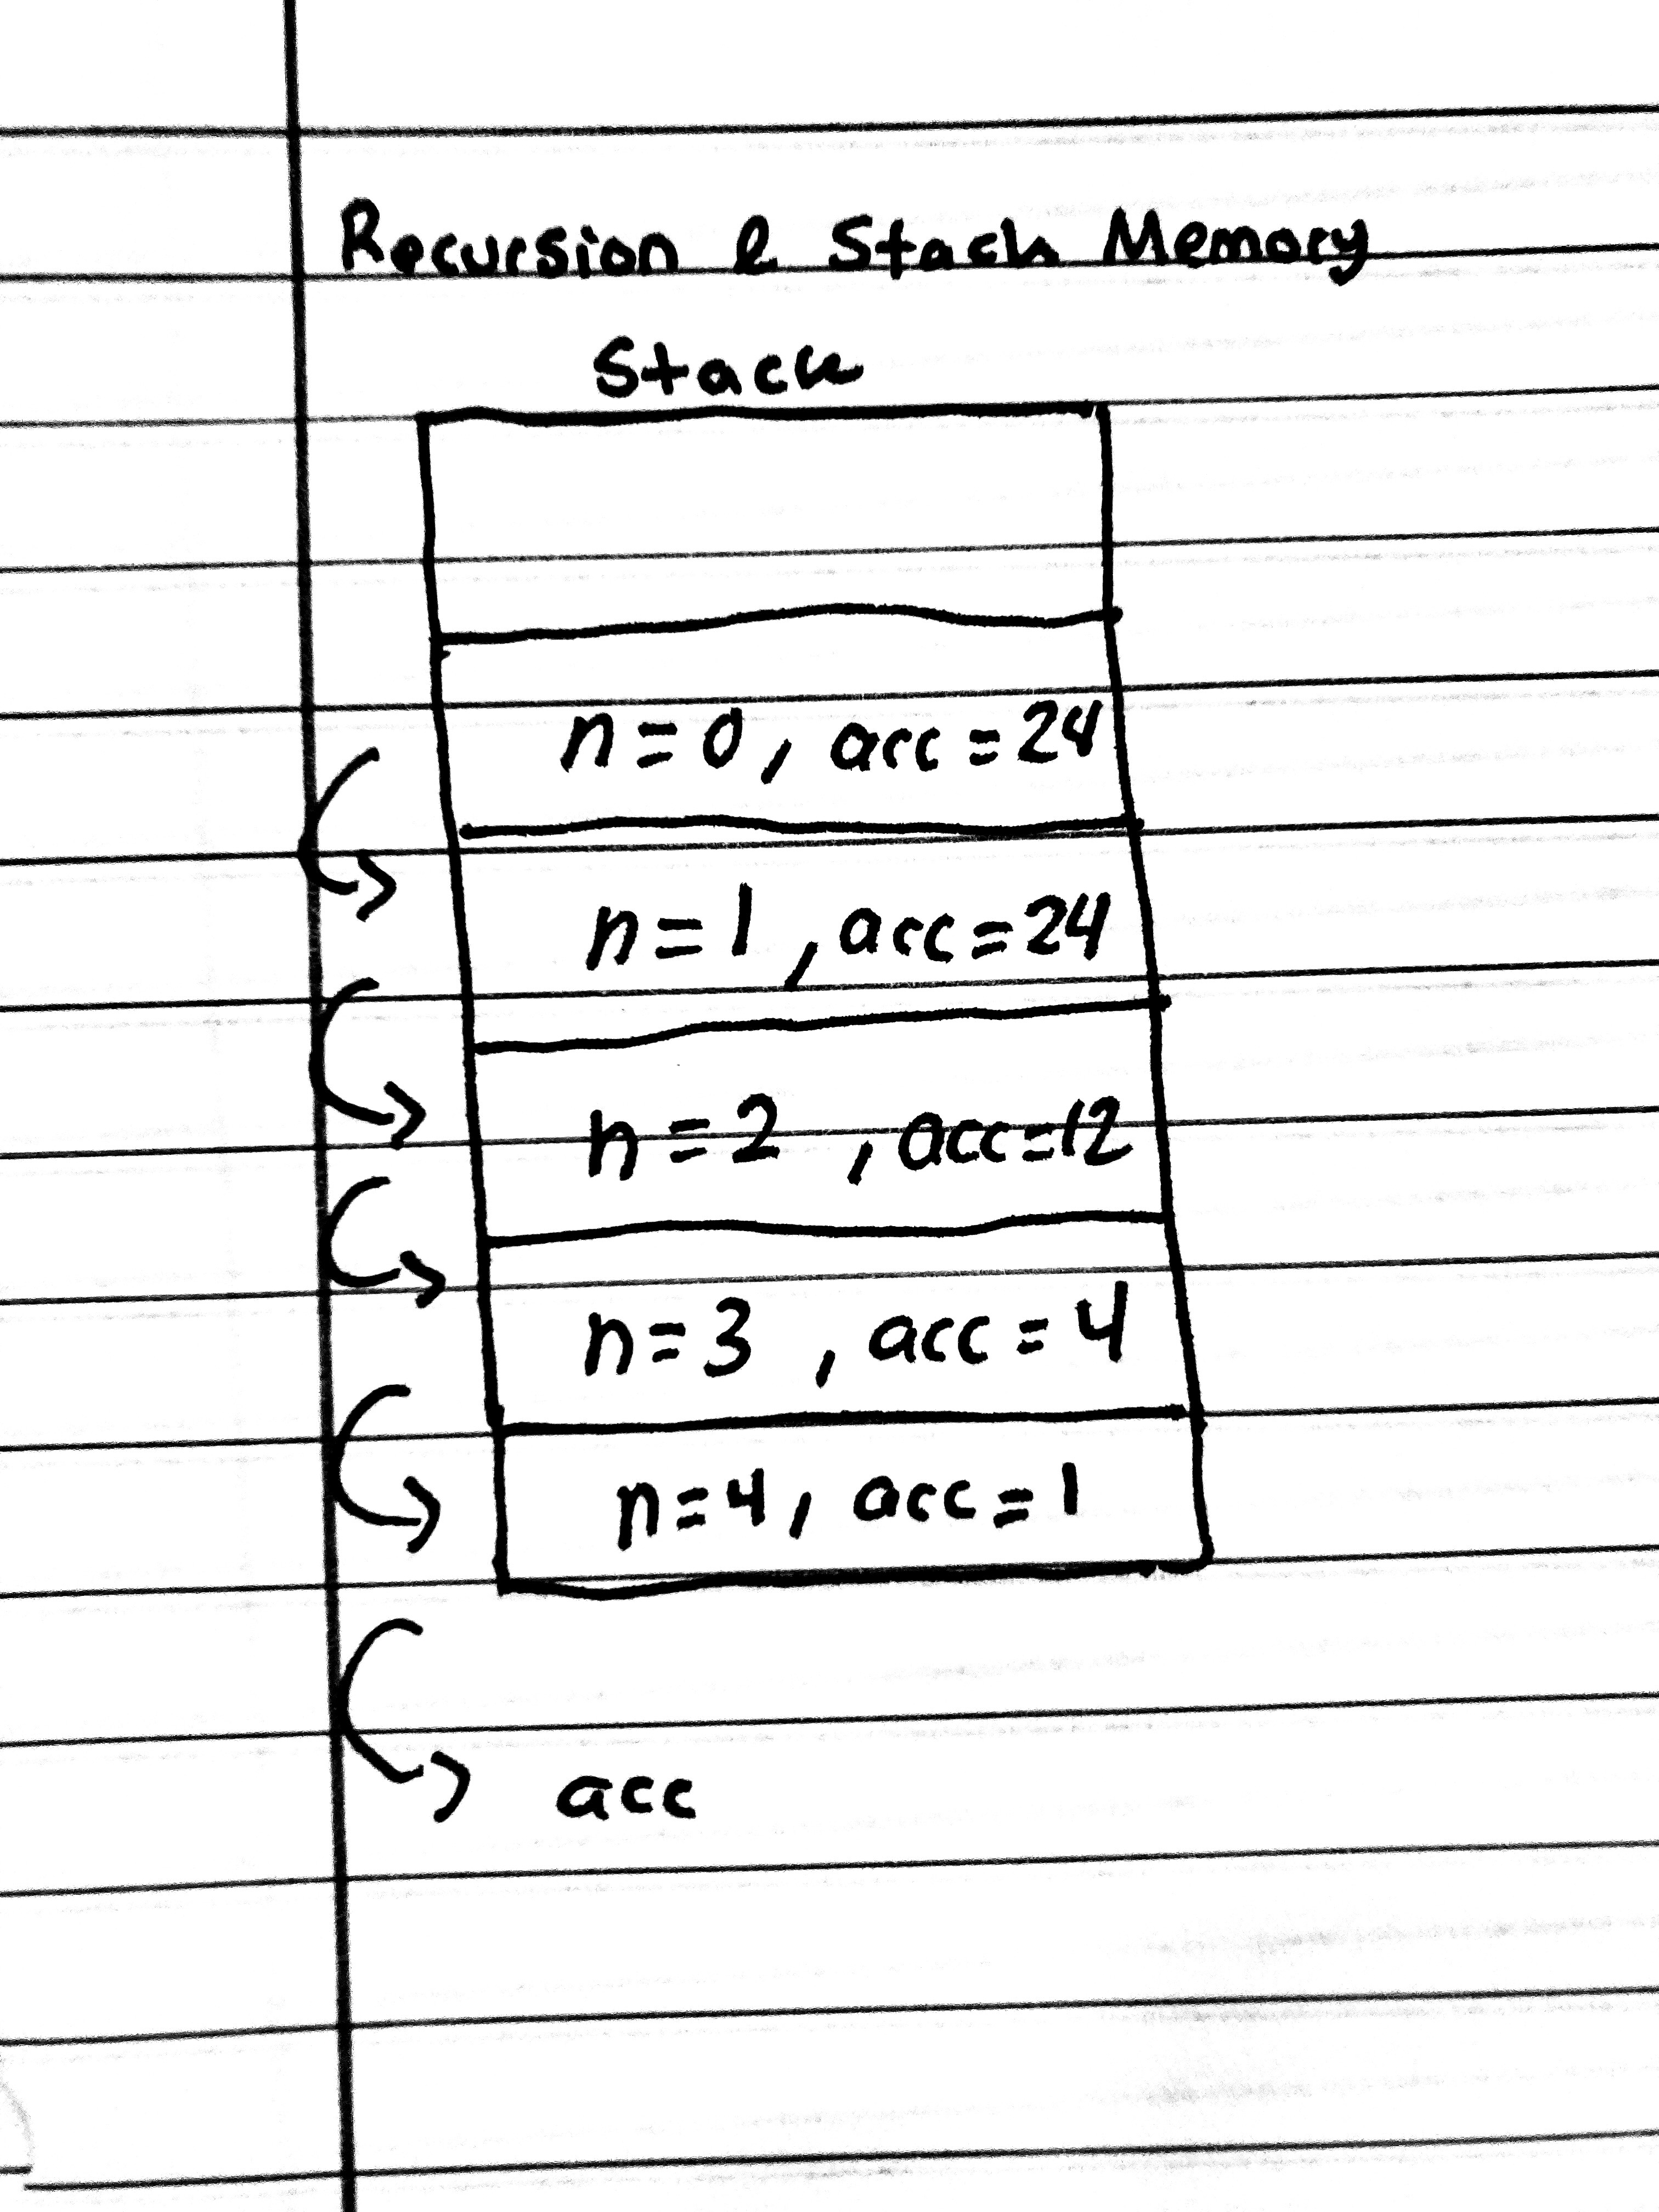 Recursion & Stack Memory
Stack
n=0, acc=24
n=1, acc=24
n=2, acc=12
n=3, acc=4
n=4, acc=1
acc